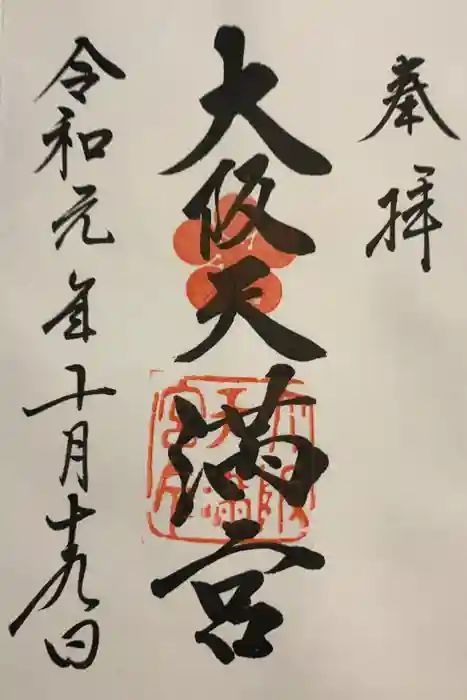 奉拝
大阪天満宮
令和元年十一月十九日